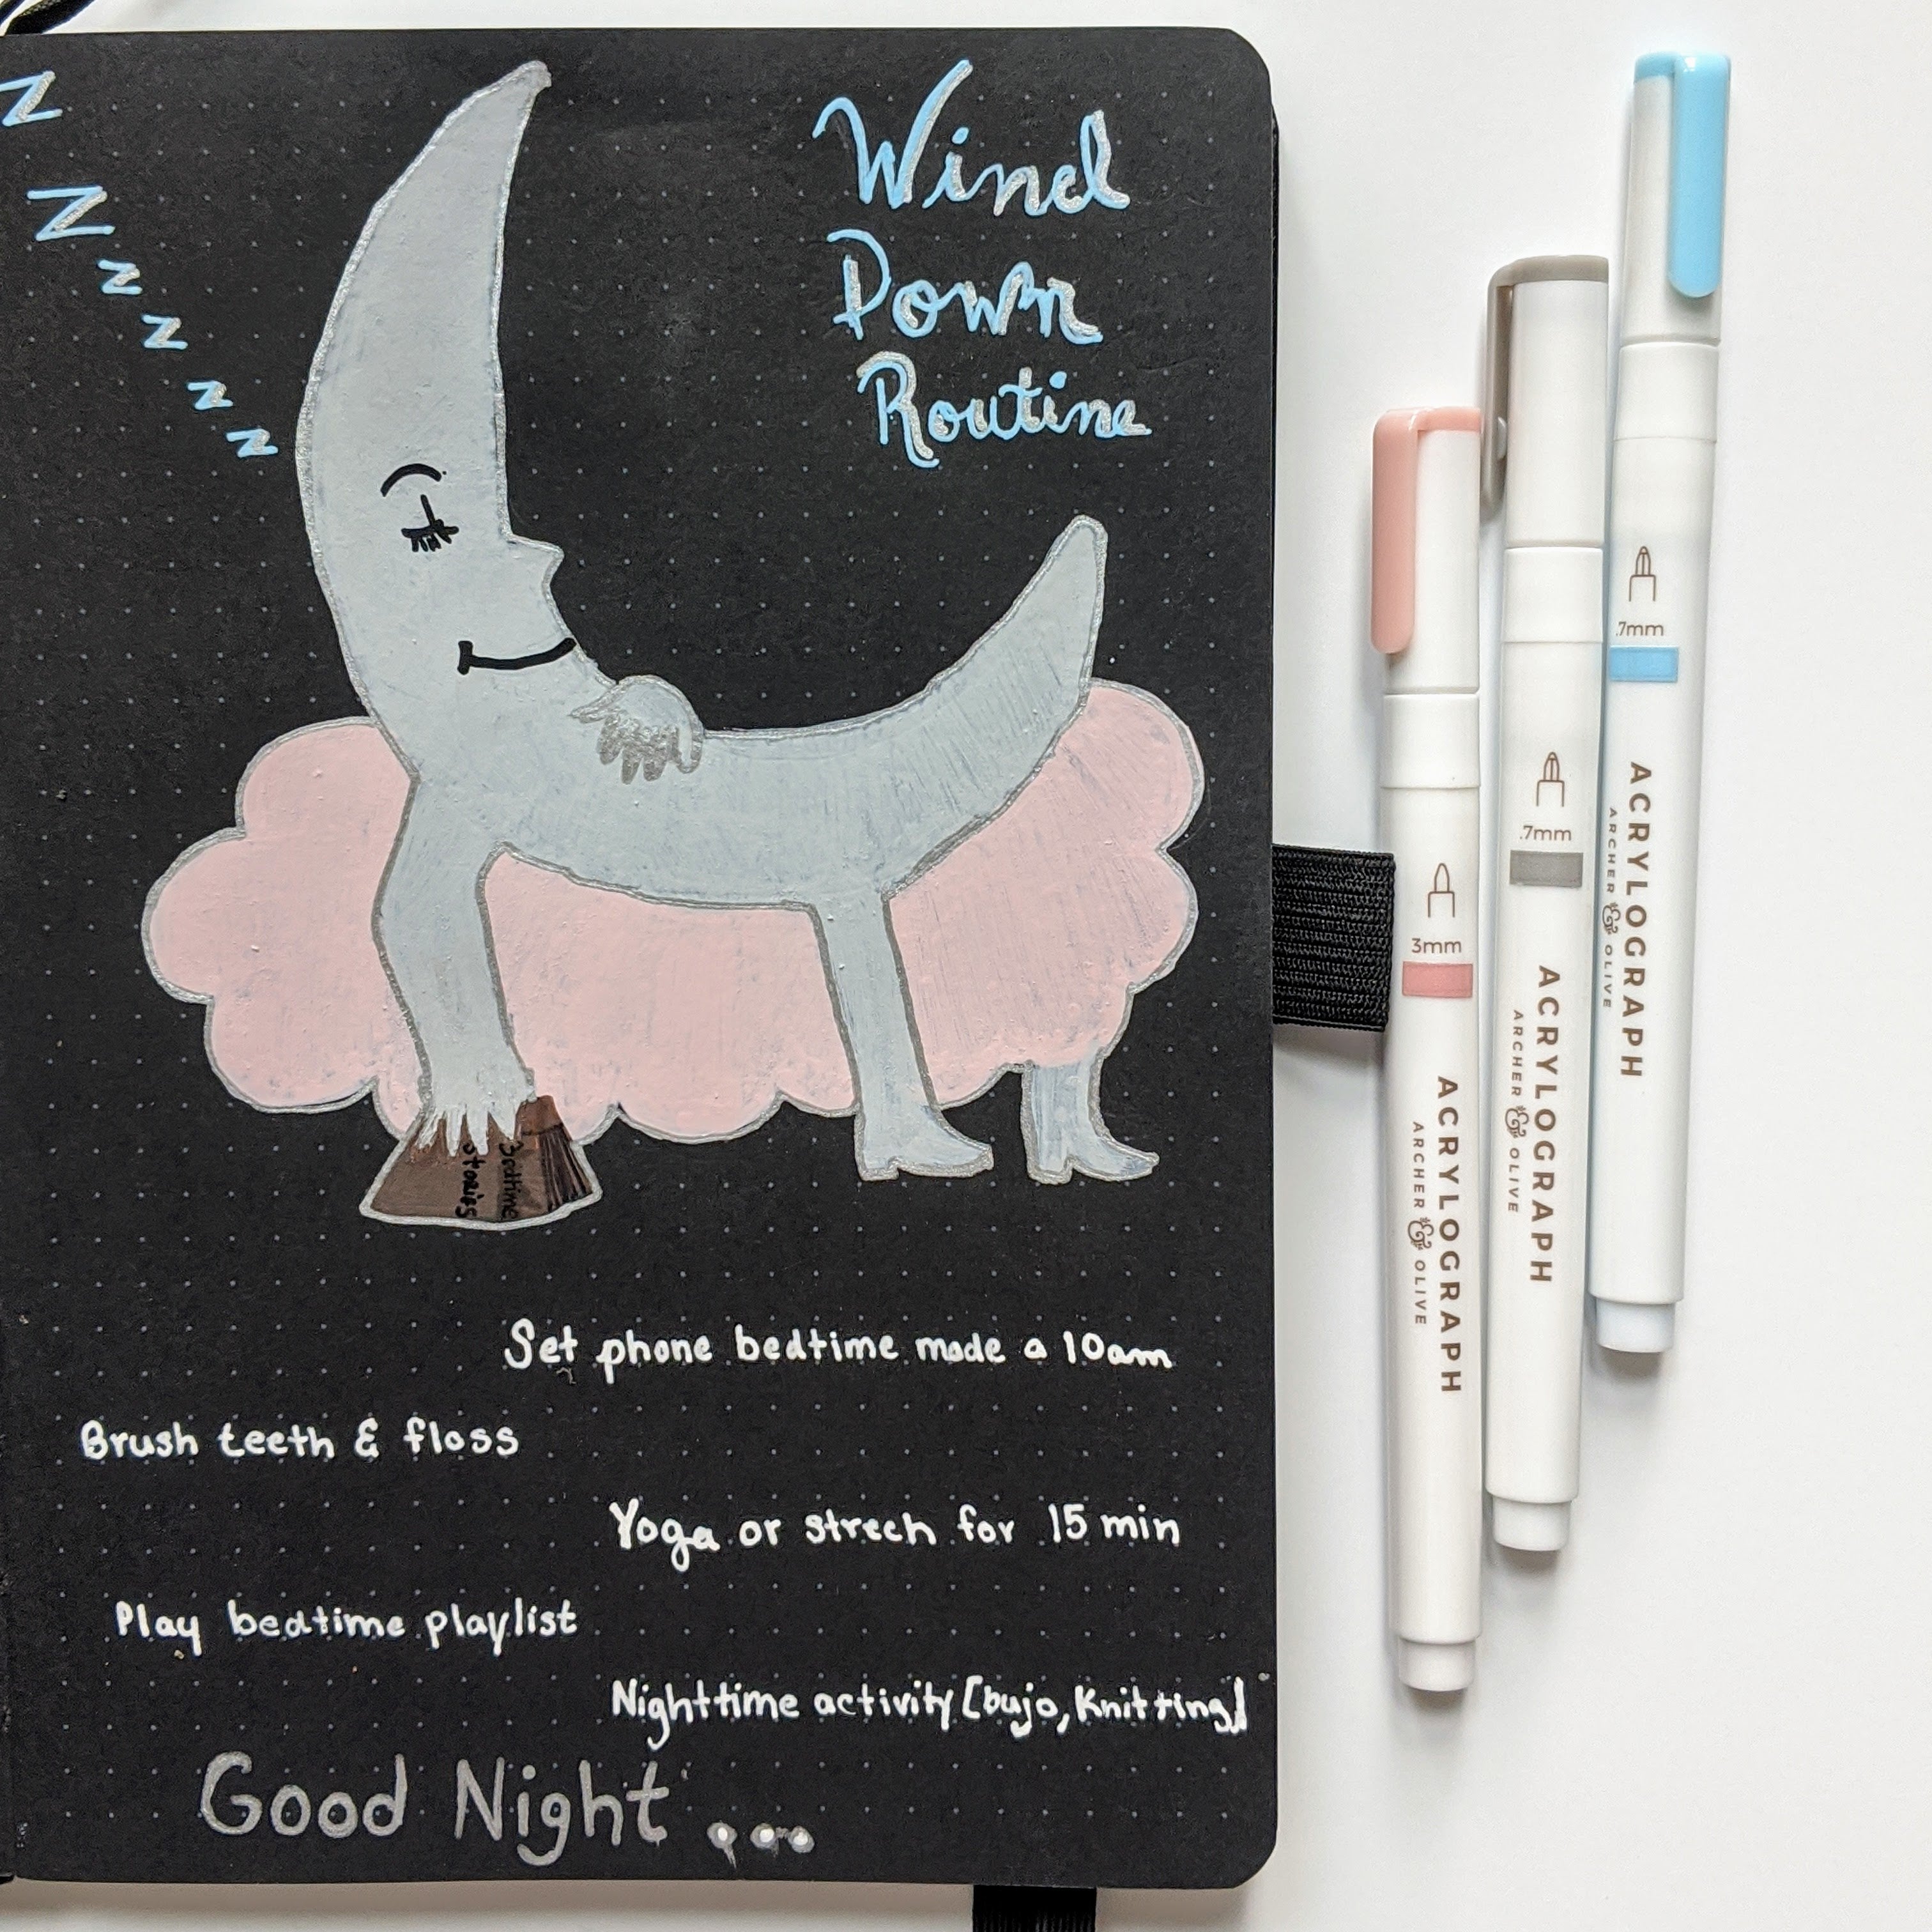 Z
Z
Z
Z
Z
Z
Wind
Down
Routine
Bedtime
Stories
Set phone bedtime mode a 10am
Brush teeth & floss
Yoga or strech for 15 min
Play bedtime playlist
Nighttime activity [bujo, Knitting]
Good Night ...
3mm
ACRYLOGRAPH
ARCHER & OLIVE
.7mm
ACRYLOGRAPH
ARCHER & OLIVE
.7mm
ACRYLOGRAPH
ARCHER & OLIVE